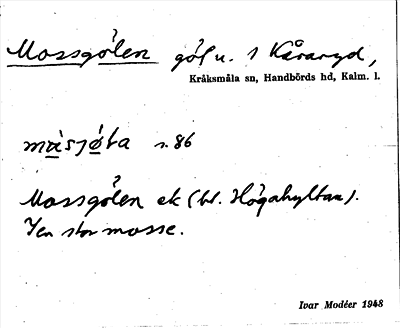 Mossgölen göl u. 1 Kåraryd,
Kråksmåla sn, Handbörds hd, Kalm. l.
s. 86
Mossgölen ek (bl. Högahyltan).
I en stor mosse.
Ivar Modéer 1948